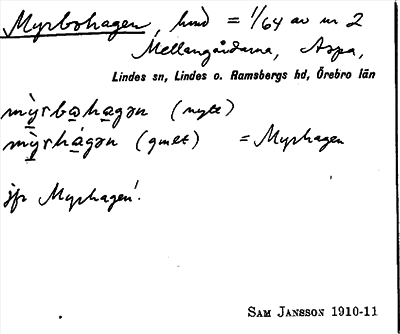 Myrbohagen, hmd = 1/64 av nr 2
Mellangårdarna, Aspa,
Lindes sn, Lindes o. Ramsbergs hd, Örebro län
mỳrbo̲ha̲gən (nytt)
mỳrhágən (gmlt) = Myrhagen
jfr Myrhagen!
SAM JANSSON 1910-11